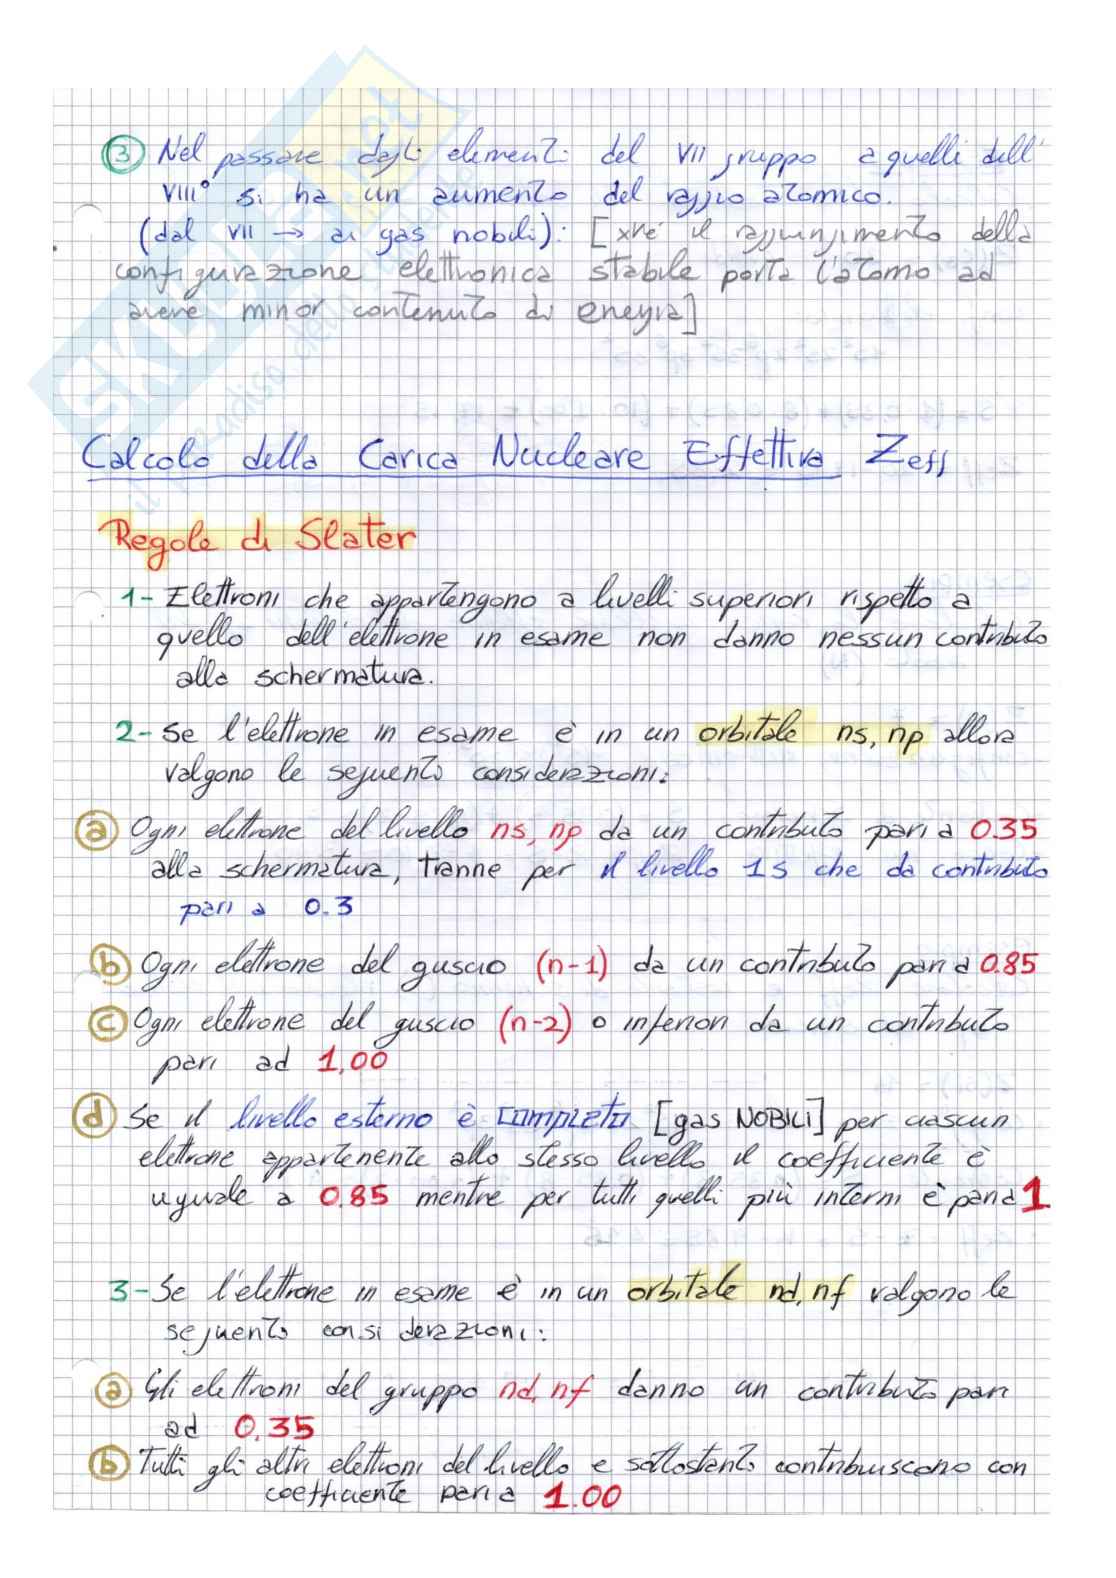 ③ Nel passare dagli elementi del VII gruppo a quelli dell'
VIII° si ha un aumento del raggio atomico.
(dal VII → ai gas nobili): [xké il raggiungimento della
configurazione elettronica stabile porta l'atomo ad
avere minor contenuto di energia]
Calcolo della Carica Nucleare Effettiva Zeff
Regole di Slater
1- Elettroni che appartengono a livelli superiori rispetto a
quello dell'elettrone in esame non danno nessun contributo
alla schermatura.
2- Se l'elettrone in esame è in un orbitale ns, np allora
valgono le seguenti considerazioni:
ⓐ Ogni elettrone del livello ns, np da un contributo pari a 0.35
alla schermatura, tranne per il livello 1s che da contributo
pari a 0.3
ⓑ Ogni elettrone del guscio (n-1) da un contributo pari a 0.85
ⓒ Ogni elettrone del guscio (n-2) o inferiori da un contributo
pari ad 1,00
ⓓ Se il livello esterno è completo [gas NOBILI] per ciascun
elettrone appartenente allo stesso livello il coefficiente è
uguale a 0.85 mentre per tutti quelli più interni è pari a 1
3- Se l'elettrone in esame è in un orbitale nd, nf valgono le
seguenti considerazioni:
ⓐ Gli elettroni del gruppo nd, nf danno un contributo pari
ad 0,35
ⓑ Tutti gli altri elettroni del livello e sottostanti contribuiscono con
coefficiente pari a 1.00